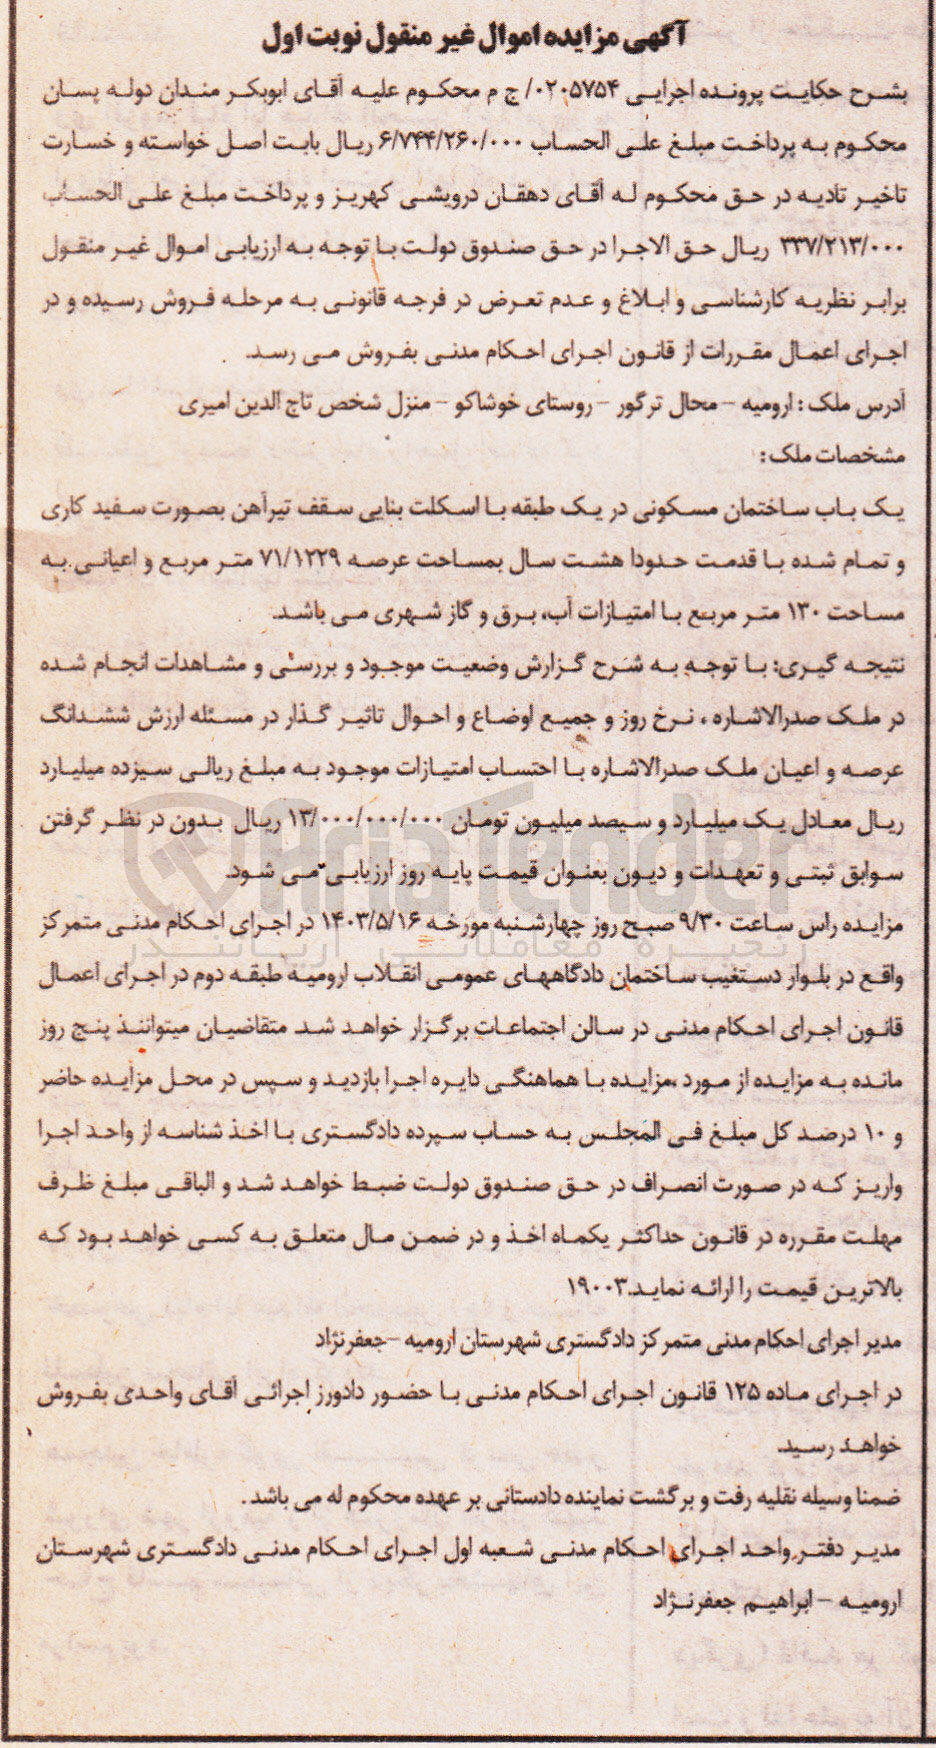 آگهی مزایده اموال غیر منقول نوبت اول
بشرح حکایت پرونده اجرایی ۰۲۰۵۷۵۴/ ج م محکوم علیه آقای ابوبکر مندان دوله پسان
محکوم به پرداخت مبلغ علی الحساب ۶/۷۴۴/۲۶۰/۰۰۰ ریال بابت اصل خواسته و خسارت
تاخیر تادیه در حق محکوم له آقای دهقان درویشی کهریز و پرداخت مبلغ علی الحساب
۳۳۷/۲۱۳/۰۰۰ ریال حق الاجرا در حق صندوق دولت با توجه به ارزیابی اموال غیر منقول
برابر نظریه کارشناسی و ابلاغ و عدم تعرض در فرجه قانونی به مرحله فروش رسیده و در
اجرای اعمال مقررات از قانون اجرای احکام مدنی بفروش می رسد.
آدرس ملک : ارومیه – محال ترگور – روستای خوشاکو – منزل شخص تاج الدین امیری
مشخصات ملک :
یک باب ساختمان مسکونی در یک طبقه با اسکلت بنایی سقف تیرآهن بصورت سفید کاری
و تمام شده با قدمت حدودا هشت سال بمساحت عرصه ۷۱/۱۲۲۹ متر مربع و اعیانی به
مساحت ۱۳۰ متر مربع با امتیازات آب، برق و گاز شهری می باشد.
نتیجه گیری: با توجه به شرح گزارش وضعیت موجود و بررسی و مشاهدات انجام شده
در ملک صدرالاشاره ، نرخ روز و جمیع اوضاع و احوال تاثیر گذار در مسئله ارزش ششدانگ
عرصه و اعیان ملک صدرالاشاره با احتساب امتیازات موجود به مبلغ ریالی سیزده میلیارد
ریال معادل یک میلیارد و سیصد میلیون تومان ۱۳/۰۰۰/۰۰۰/۰۰۰ ریال بدون در نظر گرفتن
سوابق ثبتی و تعهدات و دیون بعنوان قیمت پایه روز ارزیابی می شود.
مزایده راس ساعت ۹/۳۰ صبح روز چهارشنبه مورخه ۱۴۰۳/۵/۱۶ در اجرای احکام مدنی متمرکز
واقع در بلوار دستغیب ساختمان دادگاههای عمومی انقلاب ارومیه طبقه دوم در اجرای اعمال
قانون اجرای احکام مدنی در سالن اجتماعات برگزار خواهد شد. متقاضیان میتوانند پنج روز
مانده به مزایده از مورد ،مزایده با هماهنگی دایره اجرا بازدید و سپس در محل مزایده حاضر
و ۱۰ درصد کل مبلغ فی المجلس به حساب سپرده دادگستری با اخذ شناسه از واحد اجرا
واریز که در صورت انصراف در حق صندوق دولت ضبط خواهد شد و الباقی مبلغ ظرف
مهلت مقرره در قانون حداکثر یکماه اخذ و در ضمن مال متعلق به کسی خواهد بود که
بالاترین قیمت را ارائه نماید.۱۹۰۰۳
مدیر اجرای احکام مدنی متمرکز دادگستری شهرستان ارومیه –جعفرنژاد
در اجرای ماده ۱۲۵ قانون اجرای احکام مدنی با حضور دادورز اجرائی آقای واحدی بفروش
خواهد رسید.
ضمنا وسیله نقلیه رفت و برگشت نماینده دادستانی بر عهده محکوم له می باشد .
مدیر دفتر واحد اجرای احکام مدنی شعبه اول اجرای احکام مدنی دادگستری شهرستان
ارومیه – ابراهیم جعفرنژاد
AriaTender
زنجیره معاملاتی آریاتندر